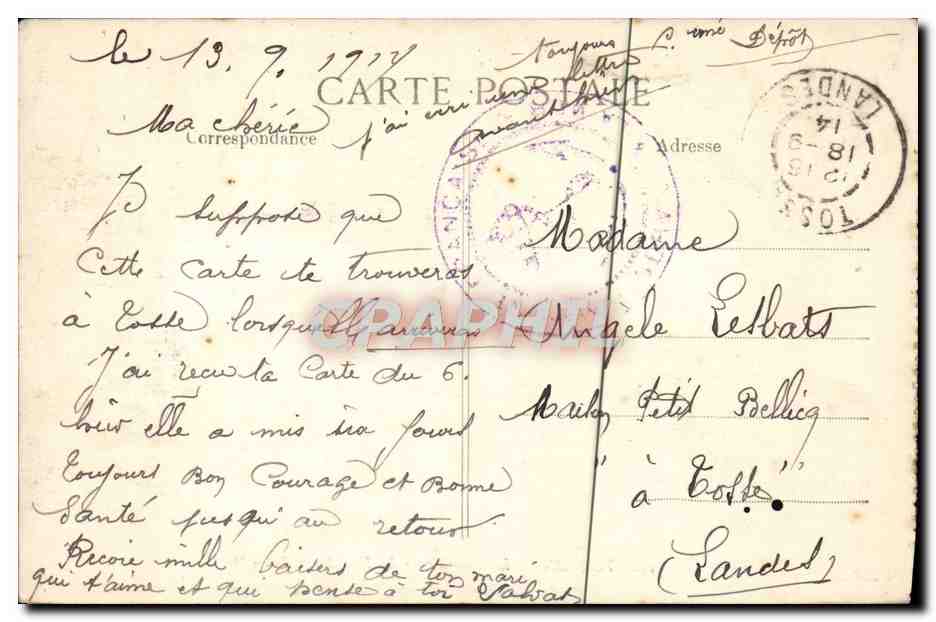 le 13. 9. 1914
toujours
lettre
j'ai une
avant hier
Dépôt
CARTE POSTALE
Ma chérie
Correspondance
Adresse
TOSSE LANDES
12 16
18 - 9
14
Je suppose que
Cette carte te trouveras
à Tosse lorsquelle arriveras
J'ai recu ta Carte du 6.
hier elle a mis six jours
Toujours Bon Courage et Bonne
Santé jusqu'au retour
Recoie mille baisers de ton mari
qui t'aime et qui pense à toi
Madame
Angele Lesbats
Petit
" à Tosse "
(Landes)
CPAPHIL